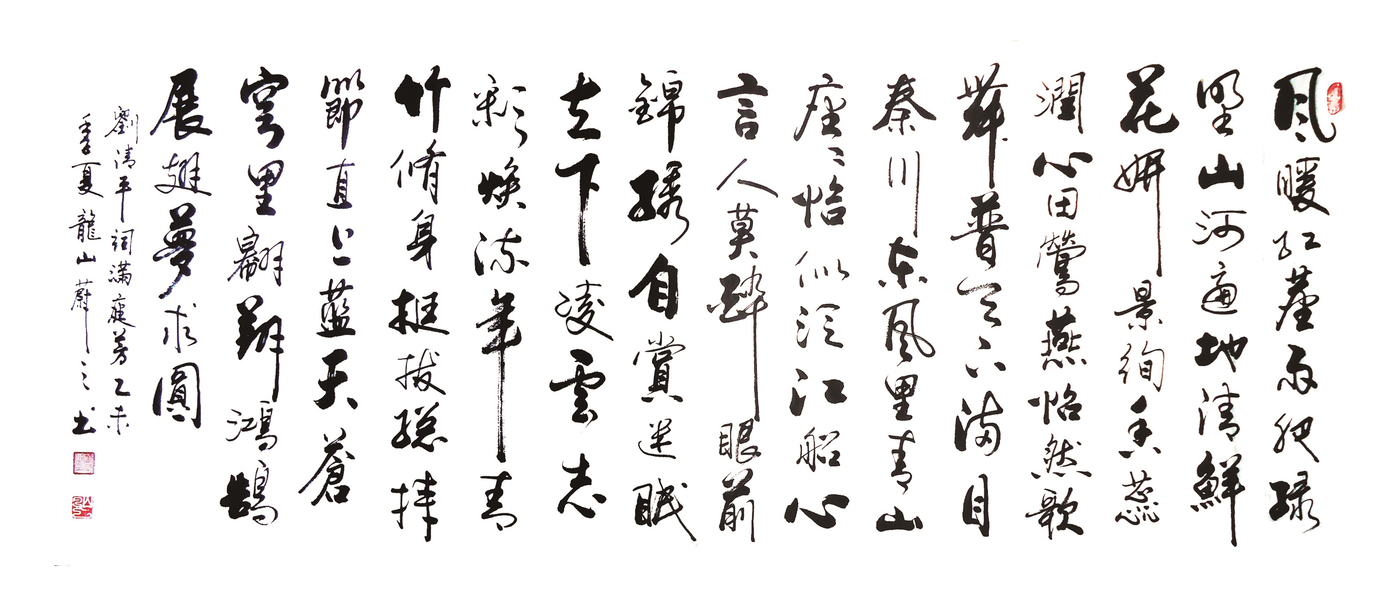 風暖紅雨肥綠
野山河遍地清鮮
花妍景絢香蕊
潤心田鶯燕怡然歌
舞普天下滿目
秦川東風里青山
座座恰似泛江船心
言人莫醉眼前
錦繡自賞迷眠
立下凌雲志
彩煥流年青
竹脩身挺拔總
節直上藍天蒼
穹里翱翔鴻鵠
展翅夢求圓
劉清平詞滿庭芳乙未
季夏龍山蔚之書